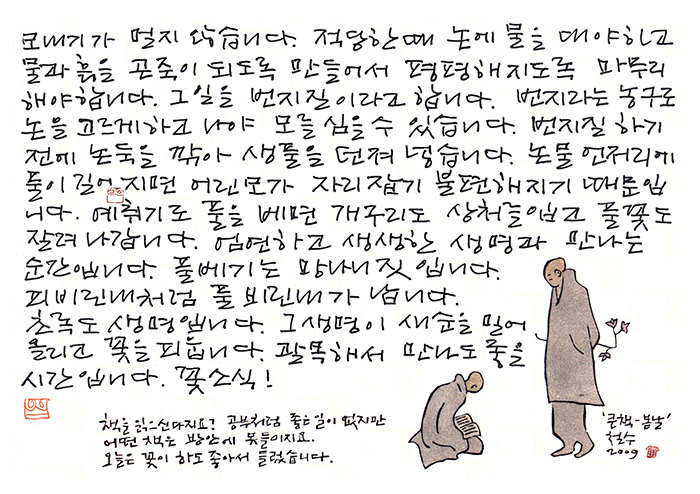 모내기가 멀지 않습니다. 적당한때 논에 물을 대야하고
물과 흙을 곤죽이 되도록 만들어서 평평해지도록 마무리
해야합니다. 그일을 번지질이라고 합니다. 번지라는 농구로
논을 고르게하고 나야 모를 심을수 있습니다. 번지질 하기
전에 논둑을 깎아 생풀을 던져 넣습니다. 논물 언저리에
풀이 길어지면 어린모가 자리잡기 불편해지기 때문입
니다. 예취기로 풀을 베면 개구리도 상처를입고 풀꽃도
잘려 나갑니다. 엄연하고 생생한 생명과 만나는
순간입니다. 풀베기는 망나니짓입니다.
피비린내처럼 풀 비린내가 납니다.
초록도 생명입니다. 그생명이 새순을 밀어
올리고 꽃을 피웁니다. 괄목해서 만나도 좋을
시간입니다. 꽃소식!
책을 읽으신다지요? 공부처럼 좋은일이 없지만
어떤 책은 방안에 못들이지요.
오늘은 꽃이 하도 좋아서 들렀습니다.
'큰책-봄날'
철수
2009